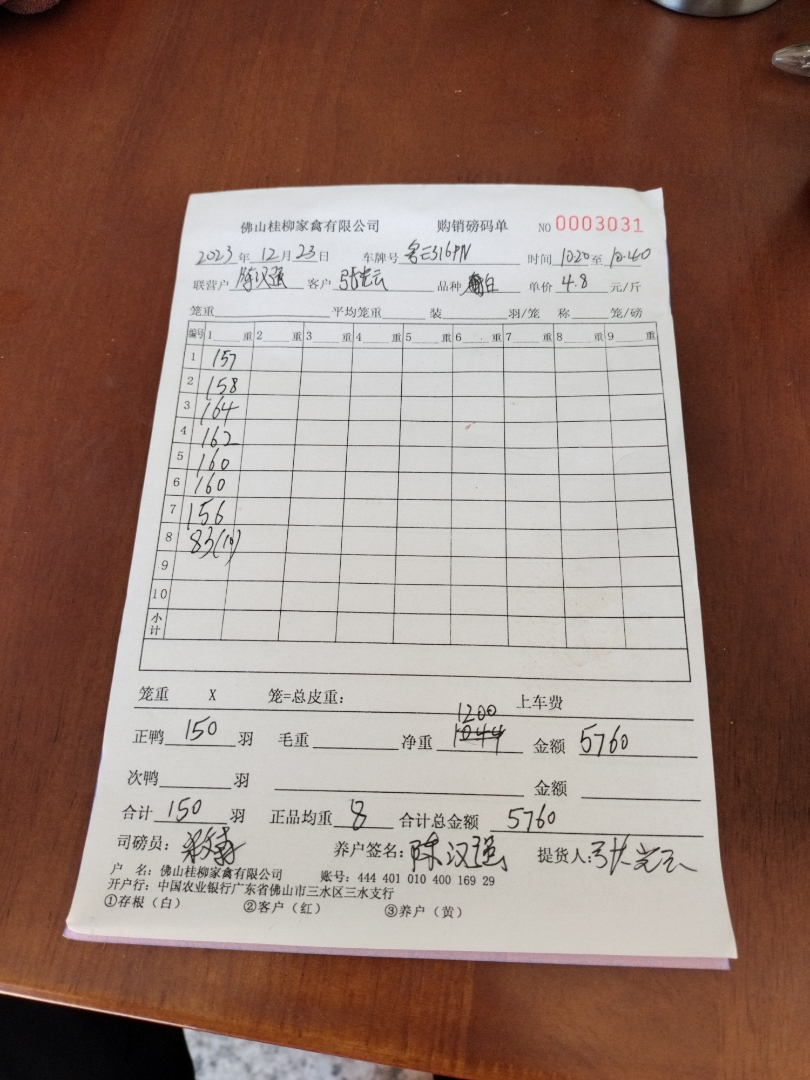 佛山桂柳家禽有限公司 购销磅码单 NO 0003031
2023年12月23日 车牌号 316PN 时间 1020至10.40
联营户 陈汉强 客户 张光云 品种 白 单价 4.8 元/斤
笼重 平均笼重 装 羽/笼 称 笼/磅
编号 1 重 2 重 3 重 4 重 5 重 6 重 7 重 8 重 9 重
1 157
2 158
3 164
4 162
5 160
6 160
7 156
8 83(10)
9
10
小计
笼重 X 笼=总皮重: 上车费
1200
正鸭 150 羽 毛重 净重 1044 金额 5760
次鸭 羽 金额
合计 150 羽 正品均重 8 合计总金额 5760
司磅员: 养户签名: 陈汉强 提货人: 张光云
户 名: 佛山桂柳家禽有限公司 账号: 444 401 010 400 169 29
开户行: 中国农业银行广东省佛山市三水区三水支行
①存根(白) ②客户(红) ③养户(黄)